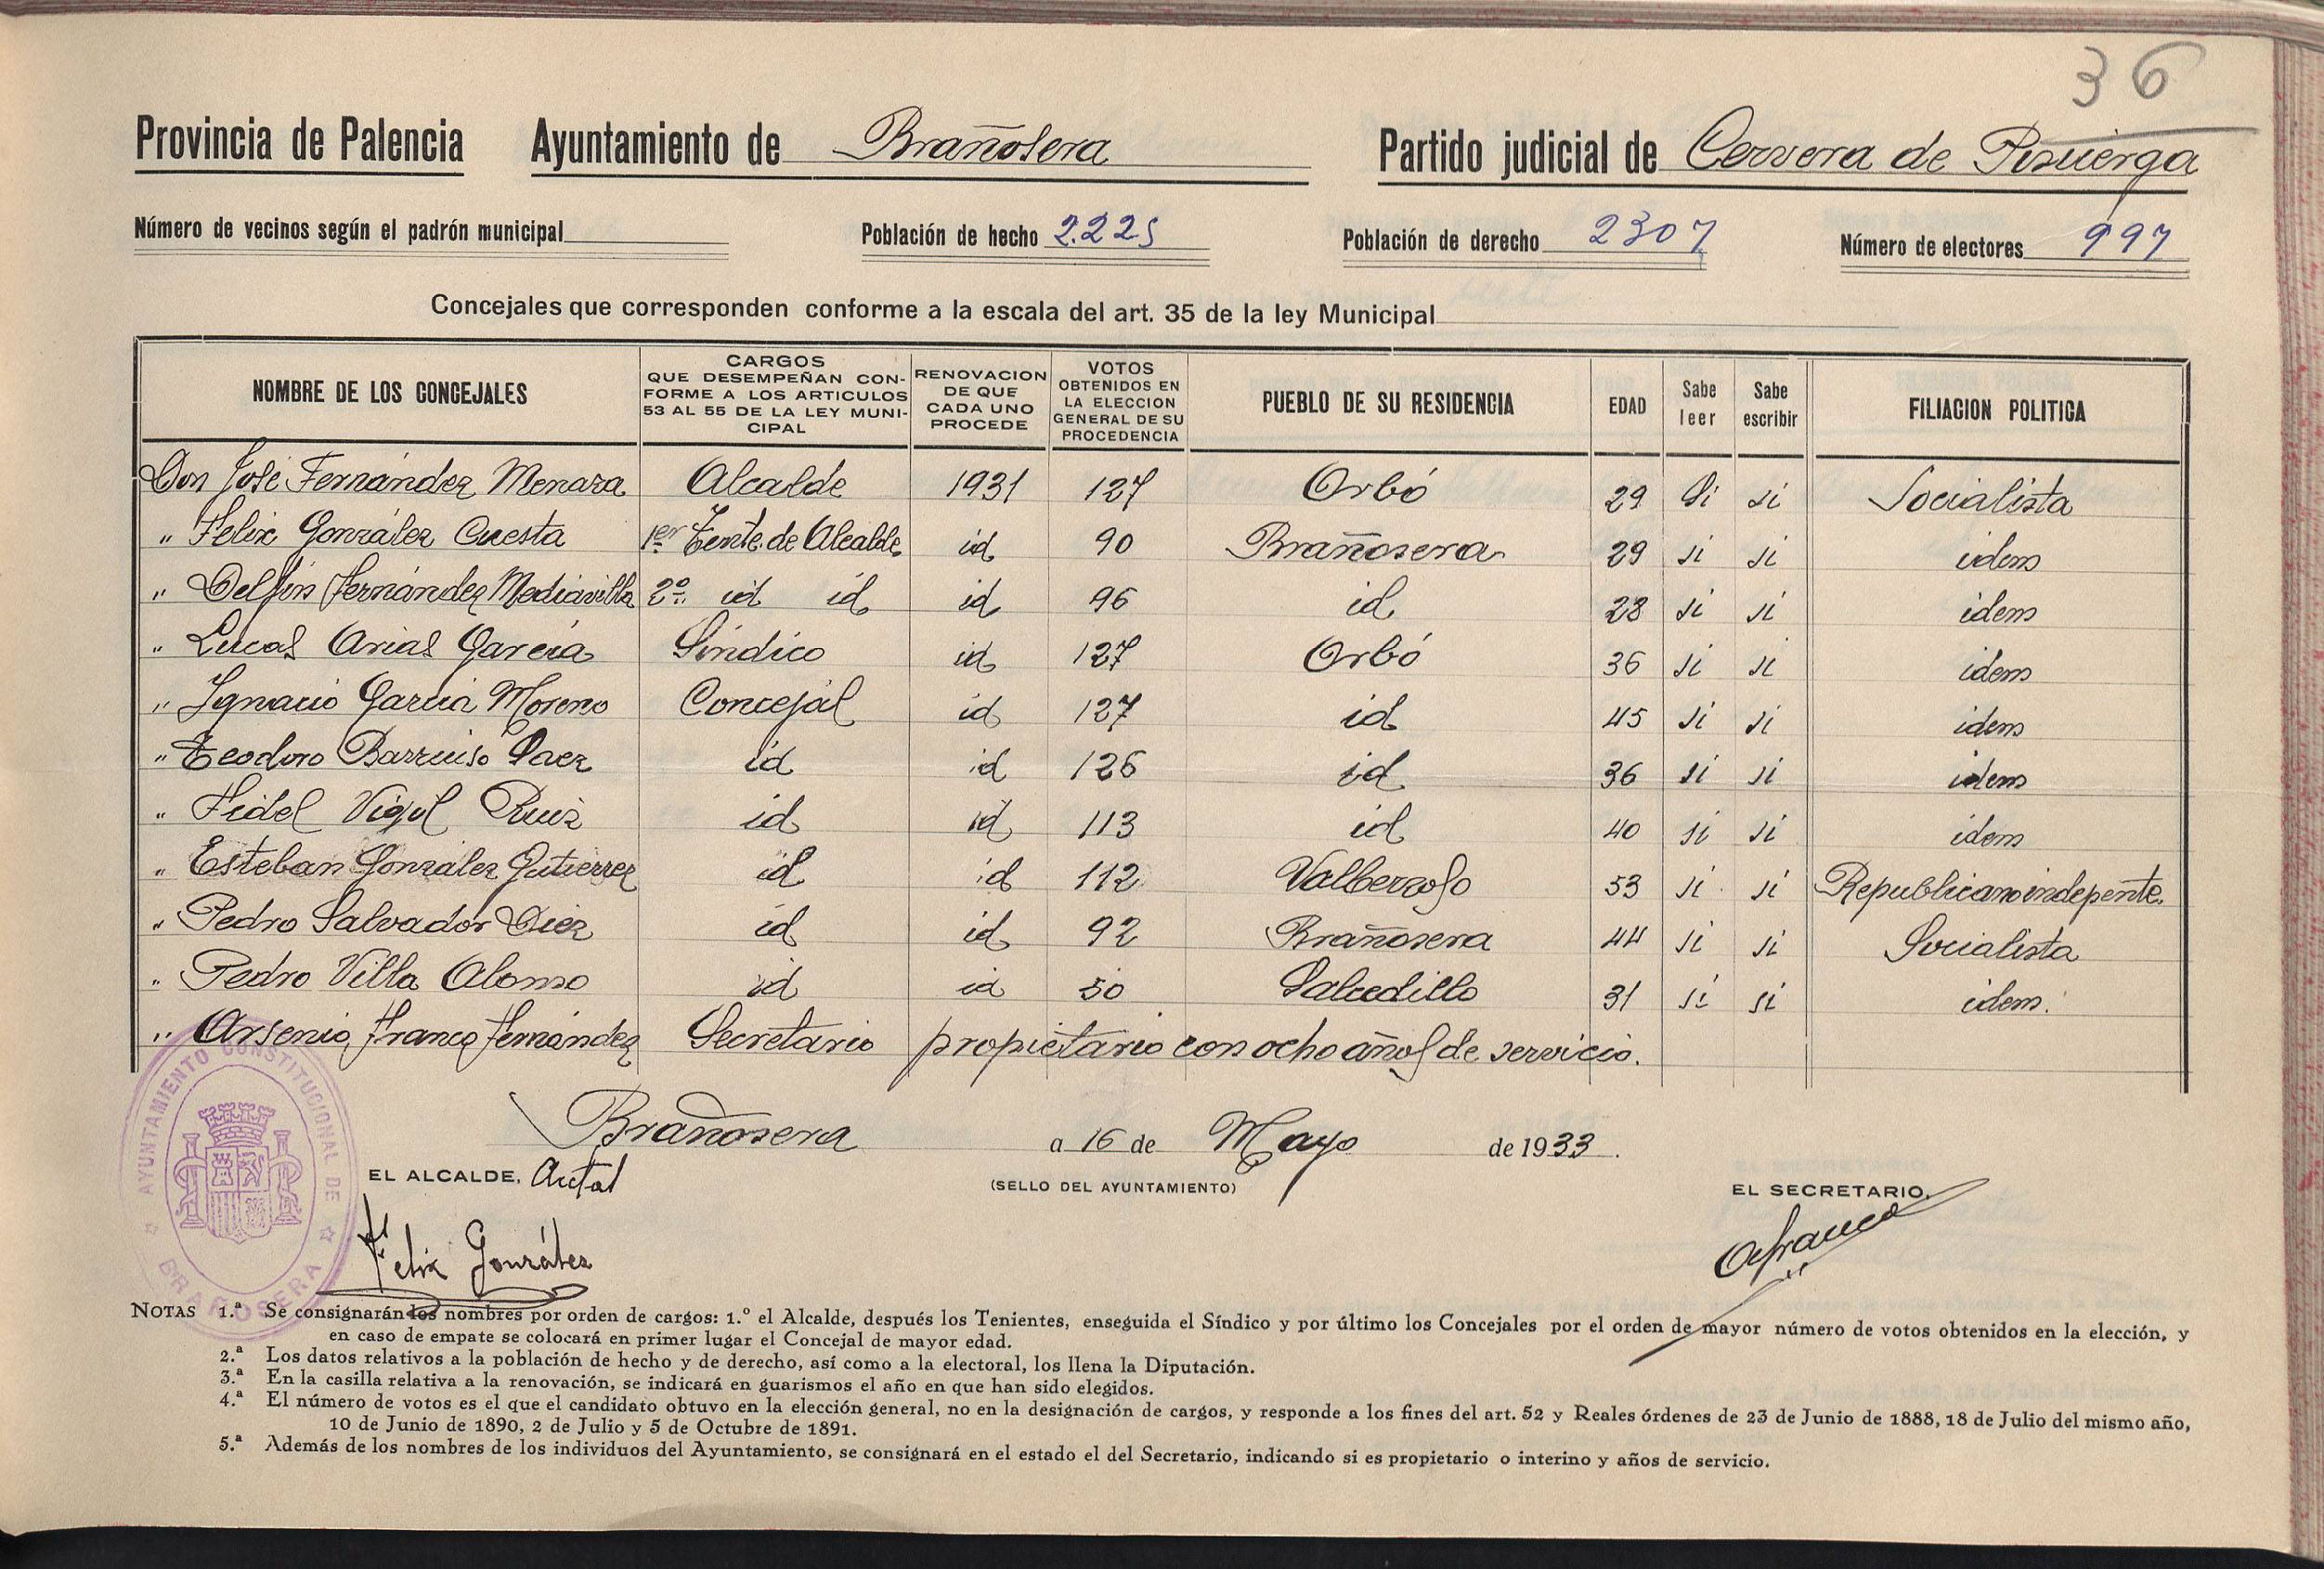 36
Provincia de Palencia Ayuntamiento de Brañosera Partido judicial de Cervera de Pisuerga
Número de vecinos según el padrón municipal Población de hecho 2.225 Población de derecho 2307 Número de electores 997
Concejales que corresponden conforme a la escala del art. 35 de la ley Municipal
NOMBRE DE LOS CONCEJALES CARGOS QUE DESEMPEÑAN CONFORME A LOS ARTICULOS 53 AL 55 DE LA LEY MUNICIPAL RENOVACION DE QUE CADA UNO PROCEDE VOTOS OBTENIDOS EN LA ELECCION GENERAL DE SU PROCEDENCIA PUEBLO DE SU RESIDENCIA EDAD Sabe leer Sabe escribir FILIACION POLITICA
Don José Fernández Menaza Alcalde 1931 127 Orbó 29 Si si Socialista
" Felix González Cuesta 1er Tente. de Alcalde id 90 Brañosera 29 si si idem
" Delfín Fernández Mediavilla 2º id id id 96 id 28 si si idem
" Lucas Arias García Síndico id 127 Orbó 36 si si idem
" Ignacio García Moreno Concejal id 127 id 45 si si idem
" Teodoro Barruiso Paez id id 126 id 36 si si idem
" Fidel Vigil Ruiz id id 113 id 40 si si idem
" Esteban González Gutierrez id id 112 Valberzoso 53 si si Republicano indepente.
" Pedro Salvador Diez id id 92 Brañosera 44 si si Socialista
" Pedro Villa Alonso id id 50 Salcedillo 31 si si idem.
" Arsenio Franco Fernández Secretario propietario con ocho años de servicio.
Brañosera a 16 de Mayo de 1933.
EL ALCALDE, Actal (SELLO DEL AYUNTAMIENTO) EL SECRETARIO,
Felix González AFranco
AYUNTAMIENTO CONSTITUCIONAL DE BRAÑOSERA
NOTAS 1.ª Se consignarán los nombres por orden de cargos: 1.º el Alcalde, después los Tenientes, enseguida el Síndico y por último los Concejales por el orden de mayor número de votos obtenidos en la elección, y
en caso de empate se colocará en primer lugar el Concejal de mayor edad.
2.ª Los datos relativos a la población de hecho y de derecho, así como a la electoral, los llena la Diputación.
3.ª En la casilla relativa a la renovación, se indicará en guarismos el año en que han sido elegidos.
4.ª El número de votos es el que el candidato obtuvo en la elección general, no en la designación de cargos, y responde a los fines del art. 52 y Reales órdenes de 23 de Junio de 1888, 18 de Julio del mismo año,
10 de Junio de 1890, 2 de Julio y 5 de Octubre de 1891.
5.ª Además de los nombres de los individuos del Ayuntamiento, se consignará en el estado el del Secretario, indicando si es propietario o interino y años de servicio.